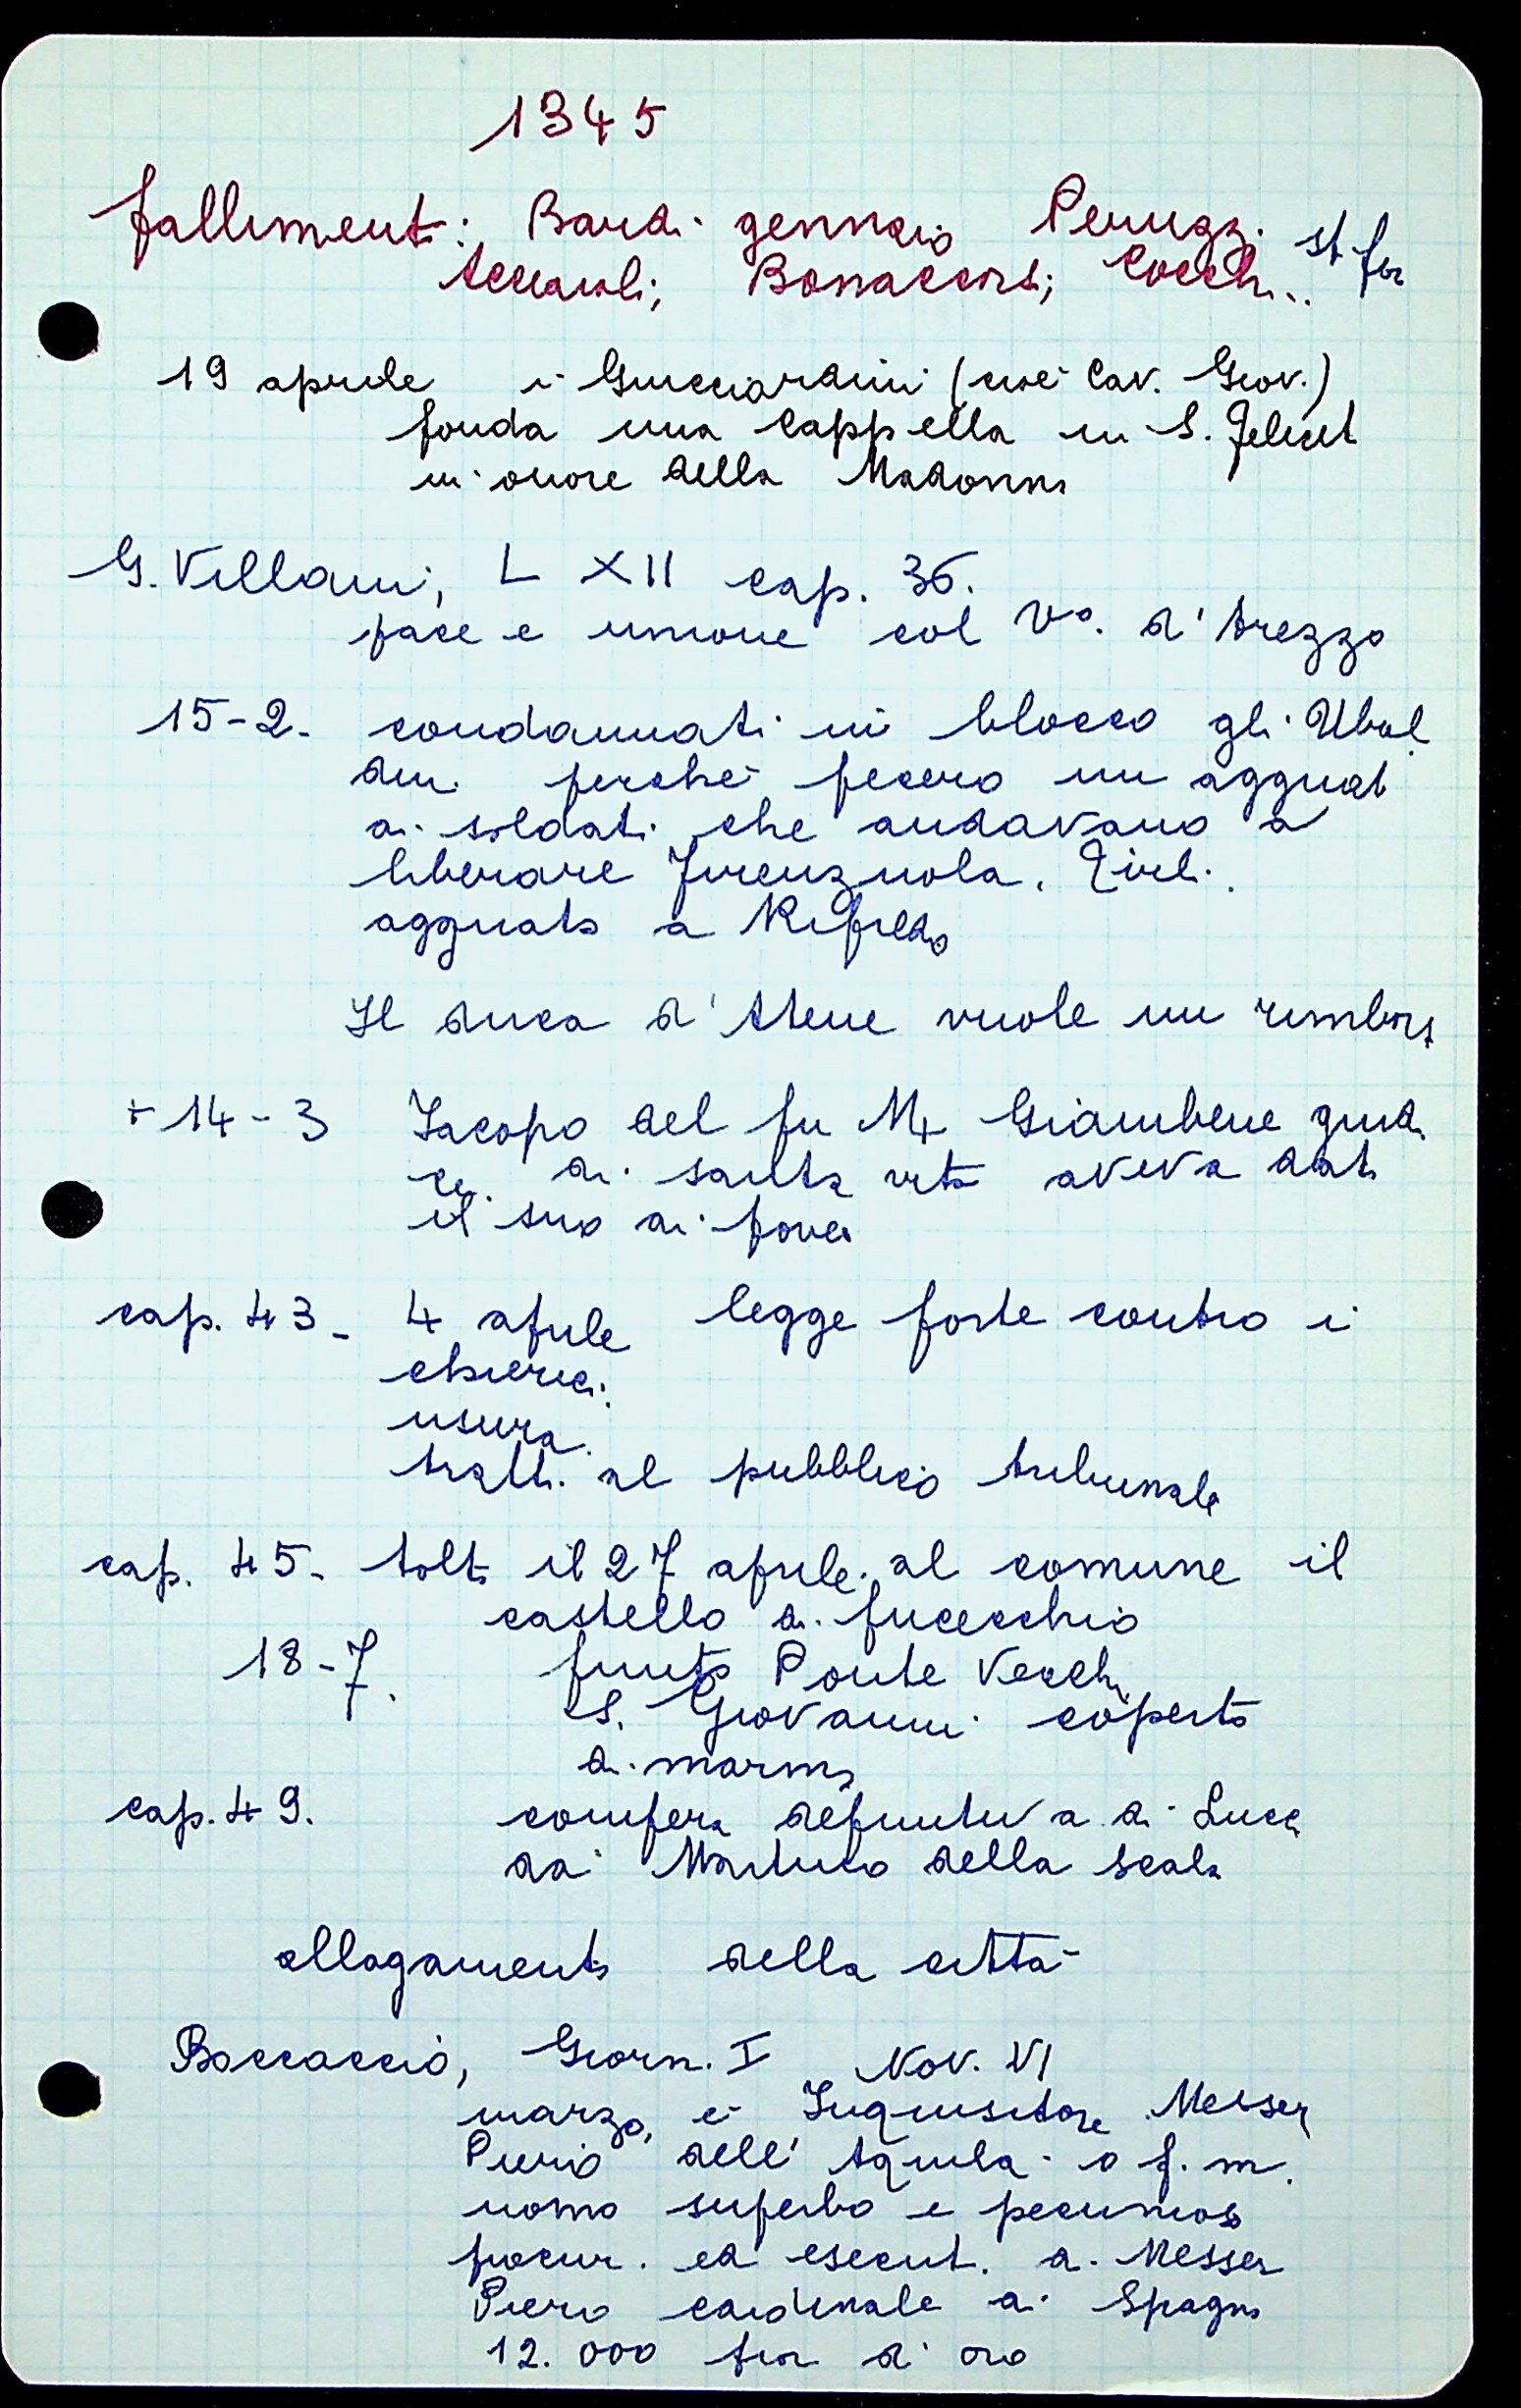 1345
fallimenti: Bardi gennaio Peruzzi st fior
Acciaioli; Bonaccorsi; Cocchi..
19 aprile i Guicciardini (cioè Cav. Giov.)
fonda una cappella in S. Felicit
in onore della Madonna
G. Villani, L XII cap. 36.
pace e unione col Vo. d'Arezzo
15-2. condannati in blocco gli Ubal
dini perché fecero un agguato
ai soldati che andavano a
liberare Firenzuola, Tirli.
agguato a Rifredo
Il duca d'Atene vuole un rimborso
+ 14-3 Iacopo del fu M Giambene giudi
ce. di santa vita aveva dato
il suo ai poveri
cap. 43- 4 aprile legge forte contro i
chierici.
usura.
tratti al pubblico tribunale
cap. 45- tolto il 27 aprile al comune il
castello di fucecchio
18-7. finito Ponte Vecchio
S. Giovanni coperto
di marmo
cap. 49. compera definitiva di Lucca
da Mastino della scala
allagamento della città
Boccaccio, Giorn. I Nov. VI
marzo, è Inquisitore Messer
Piero dell'Aquila o f. m.
uomo superbo e pecunioso
procur. ed esecut. di Messer
Piero cardinale di Spagna
12.000 fior d'oro